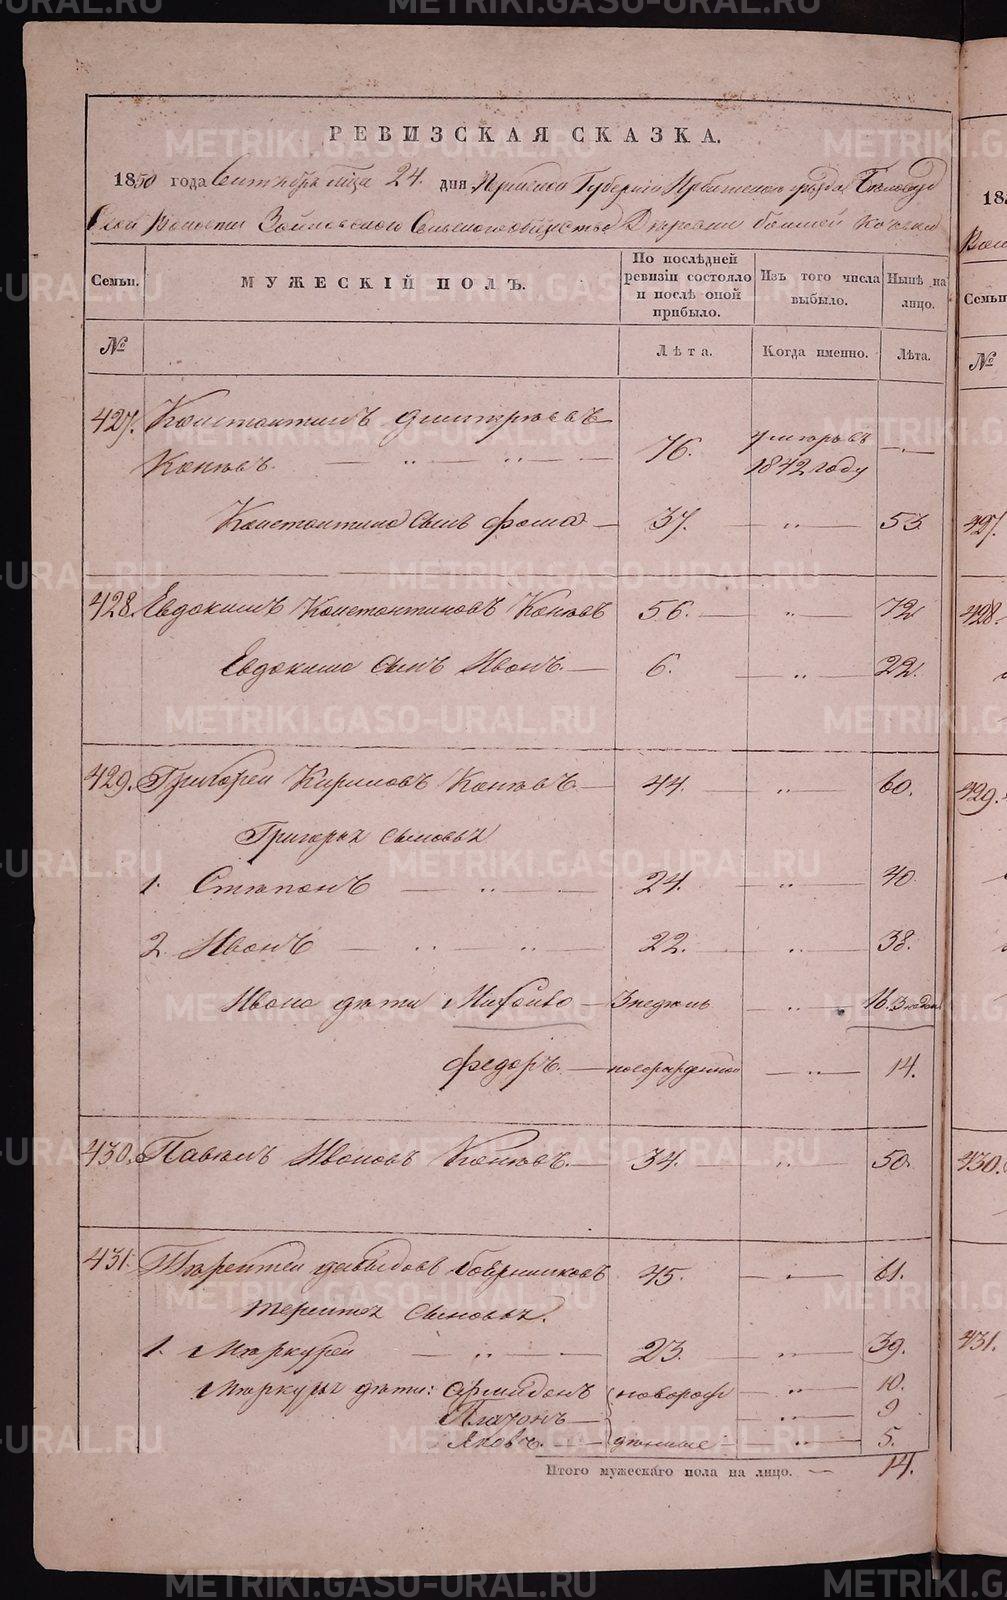 РЕВИЗСКАЯ СКАЗКА.
1850 года Сентября м-ца 24. дня Пермской Губернии Ирбитского уезда
Волости Зайковского Сельского общества Деревни большей Кочевки
Семьи. МУЖЕСКІЙ ПОЛЪ. По послѣдней ревизіи состояло и послѣ оной прибыло. Изъ того числа выбыло. Нынѣ на лицо.
№ Лѣта. Когда именно. Лѣта.
427. Константинъ Дмитрѣевъ
Конѣвъ. 76. умеръ въ 1842 году
Константина сынъ Фома 37. 53
428. Евдокимъ Константиновъ Конѣвъ 56. 72
Евдокима сынъ Иванъ 6. 22.
429. Григорей Кириловъ Конѣвъ 44. 60.
Григорья сыновья
1. Степанъ 24. 40.
2 Иванъ 22. 38.
Ивана дѣти Михайло 3 недель 16. 3 недел
Федоръ. новорожденной 14.
430. Павелъ Ивановъ Конѣвъ. 34. 50.
431. Терентей Давыдовъ Боярниковъ 45. 61.
терентья сыновья.
1. Меркурей 23. 39.
Меркурья дѣти: Спиридонъ новорож 10.
Платонъ 9
Яковъ. денные 5.
Итого мужескаго пола на лицо. 14.
18
Семьи
№
427.
428.
429.
430.
431.
METRIKI.GASO-URAL.RU